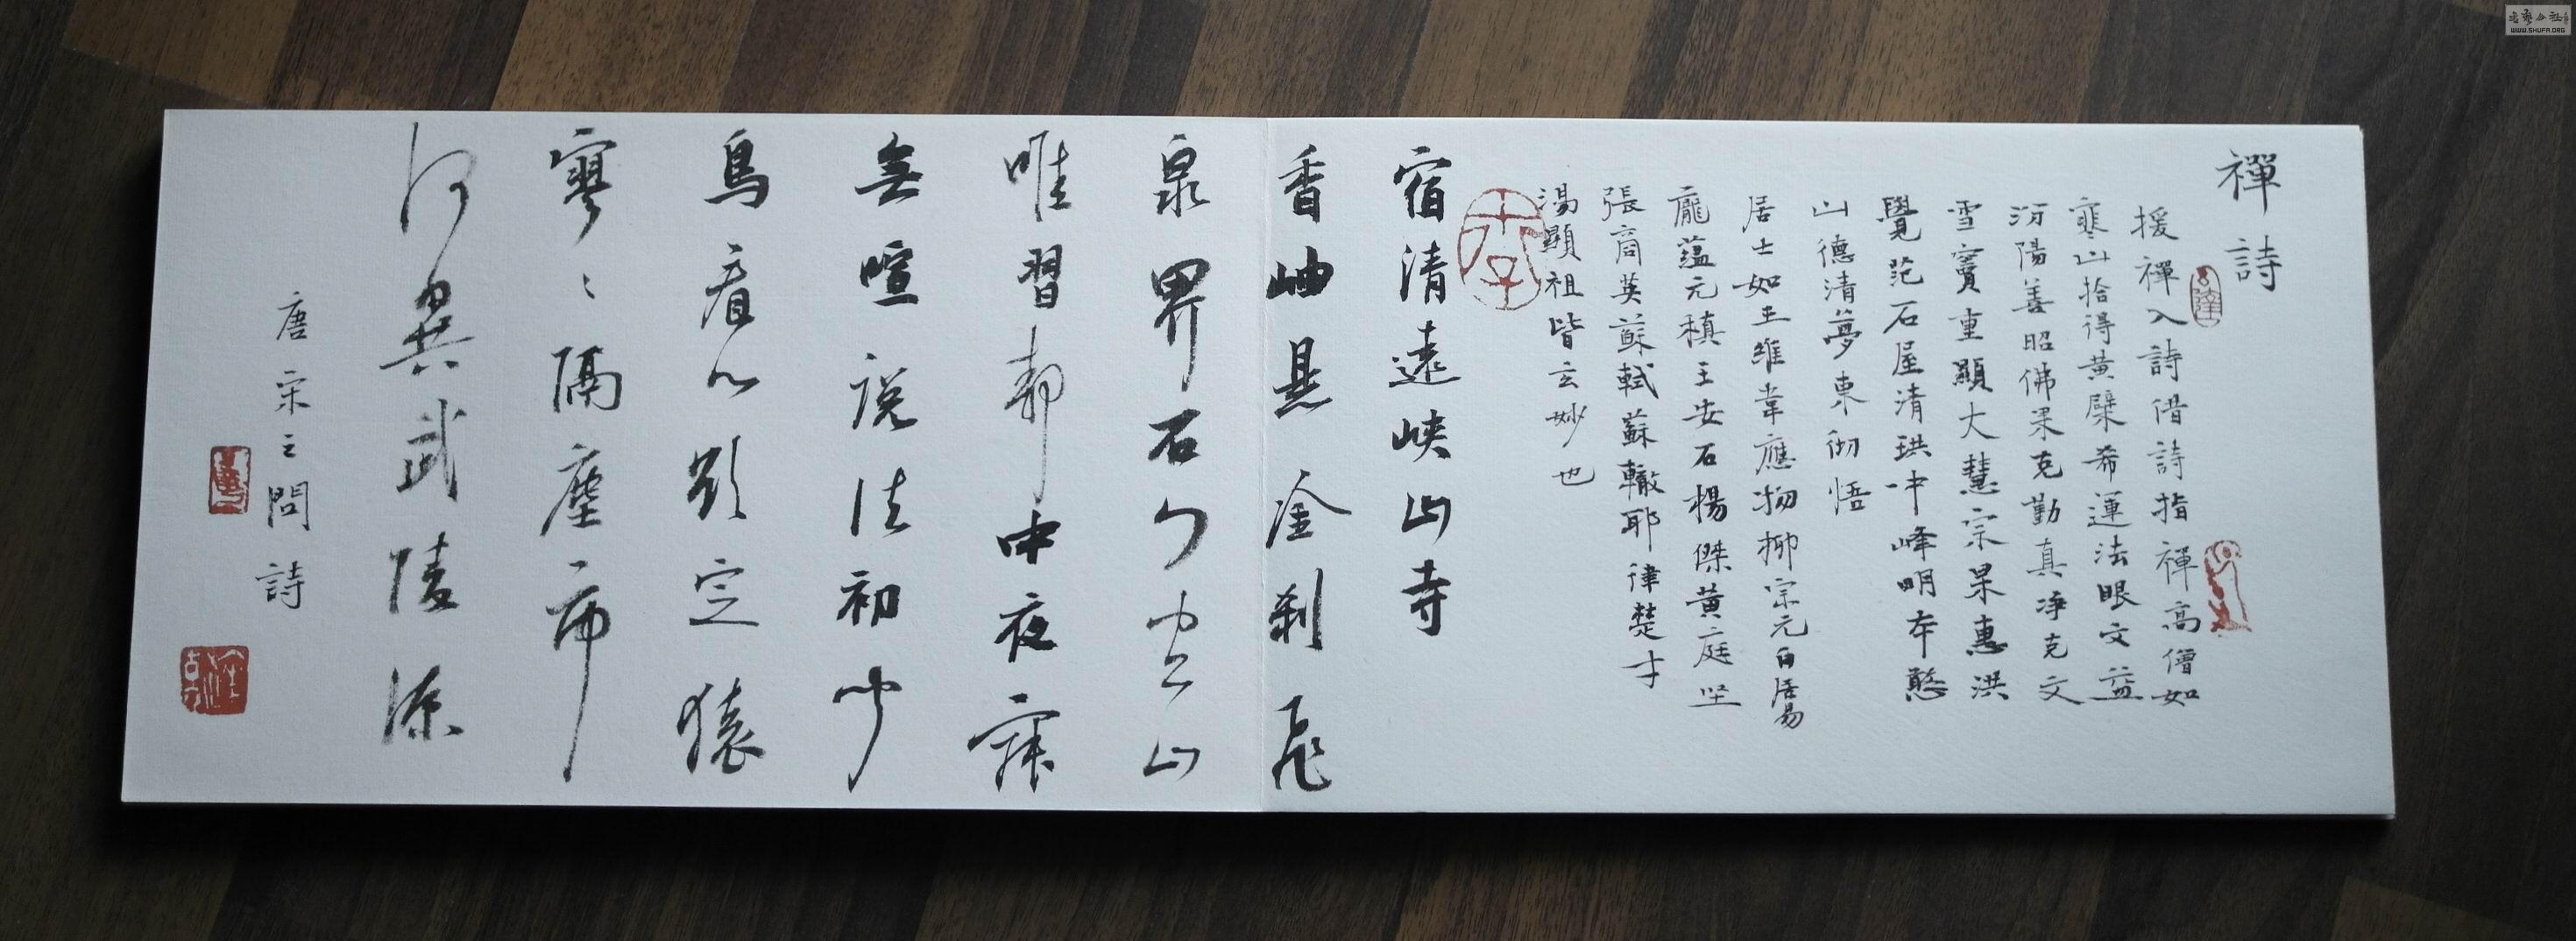 禪詩
援禪入詩借詩指禪高僧如
寒山拾得黃檗希運法眼文益
汾陽善昭佛果克勤真净克文
雪竇重顯大慧宗杲惠洪
覺范石屋清珙中峰明本憨
山德清夢東彻悟
居士如王維韋應物柳宗元白居易
龐蘊元稹王安石楊傑黃庭坚
張商英蘇軾蘇轍耶律楚才
湯顯祖皆玄妙也
宿清遠峽山寺
香岫悬金刹飛
泉界石门空山
唯習静中夜寂
無喧説法初闻
鳥看心欲定猿
寥〻隔塵市
何異武陵源
唐宋之問詩
WWW.SHUFA.ORG